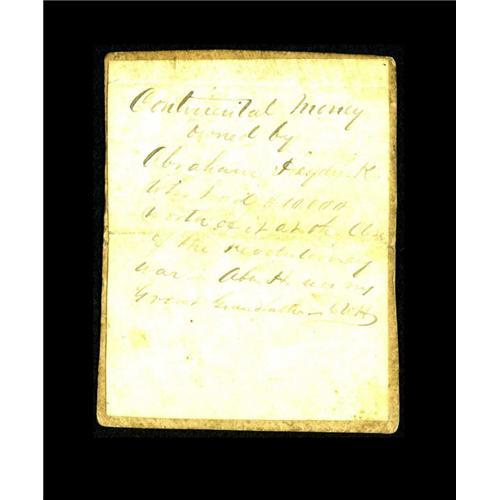 Continental Money
owned by
Abraham Heydrick
who had $10,000
worth of it at the close
of the revolutionary
war - Abm H. was my
Great Grandfather